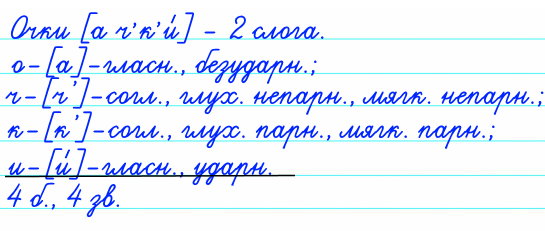 Очки [а ч’к’и́] – 2 слога.
о – [а] – гласн., безударн.;
ч – [ч’] – согл., глух. непарн., мягк. непарн.;
к – [к’] – согл., глух. парн., мягк. парн.;
и – [и́] – гласн., ударн.
4 б., 4 зв.